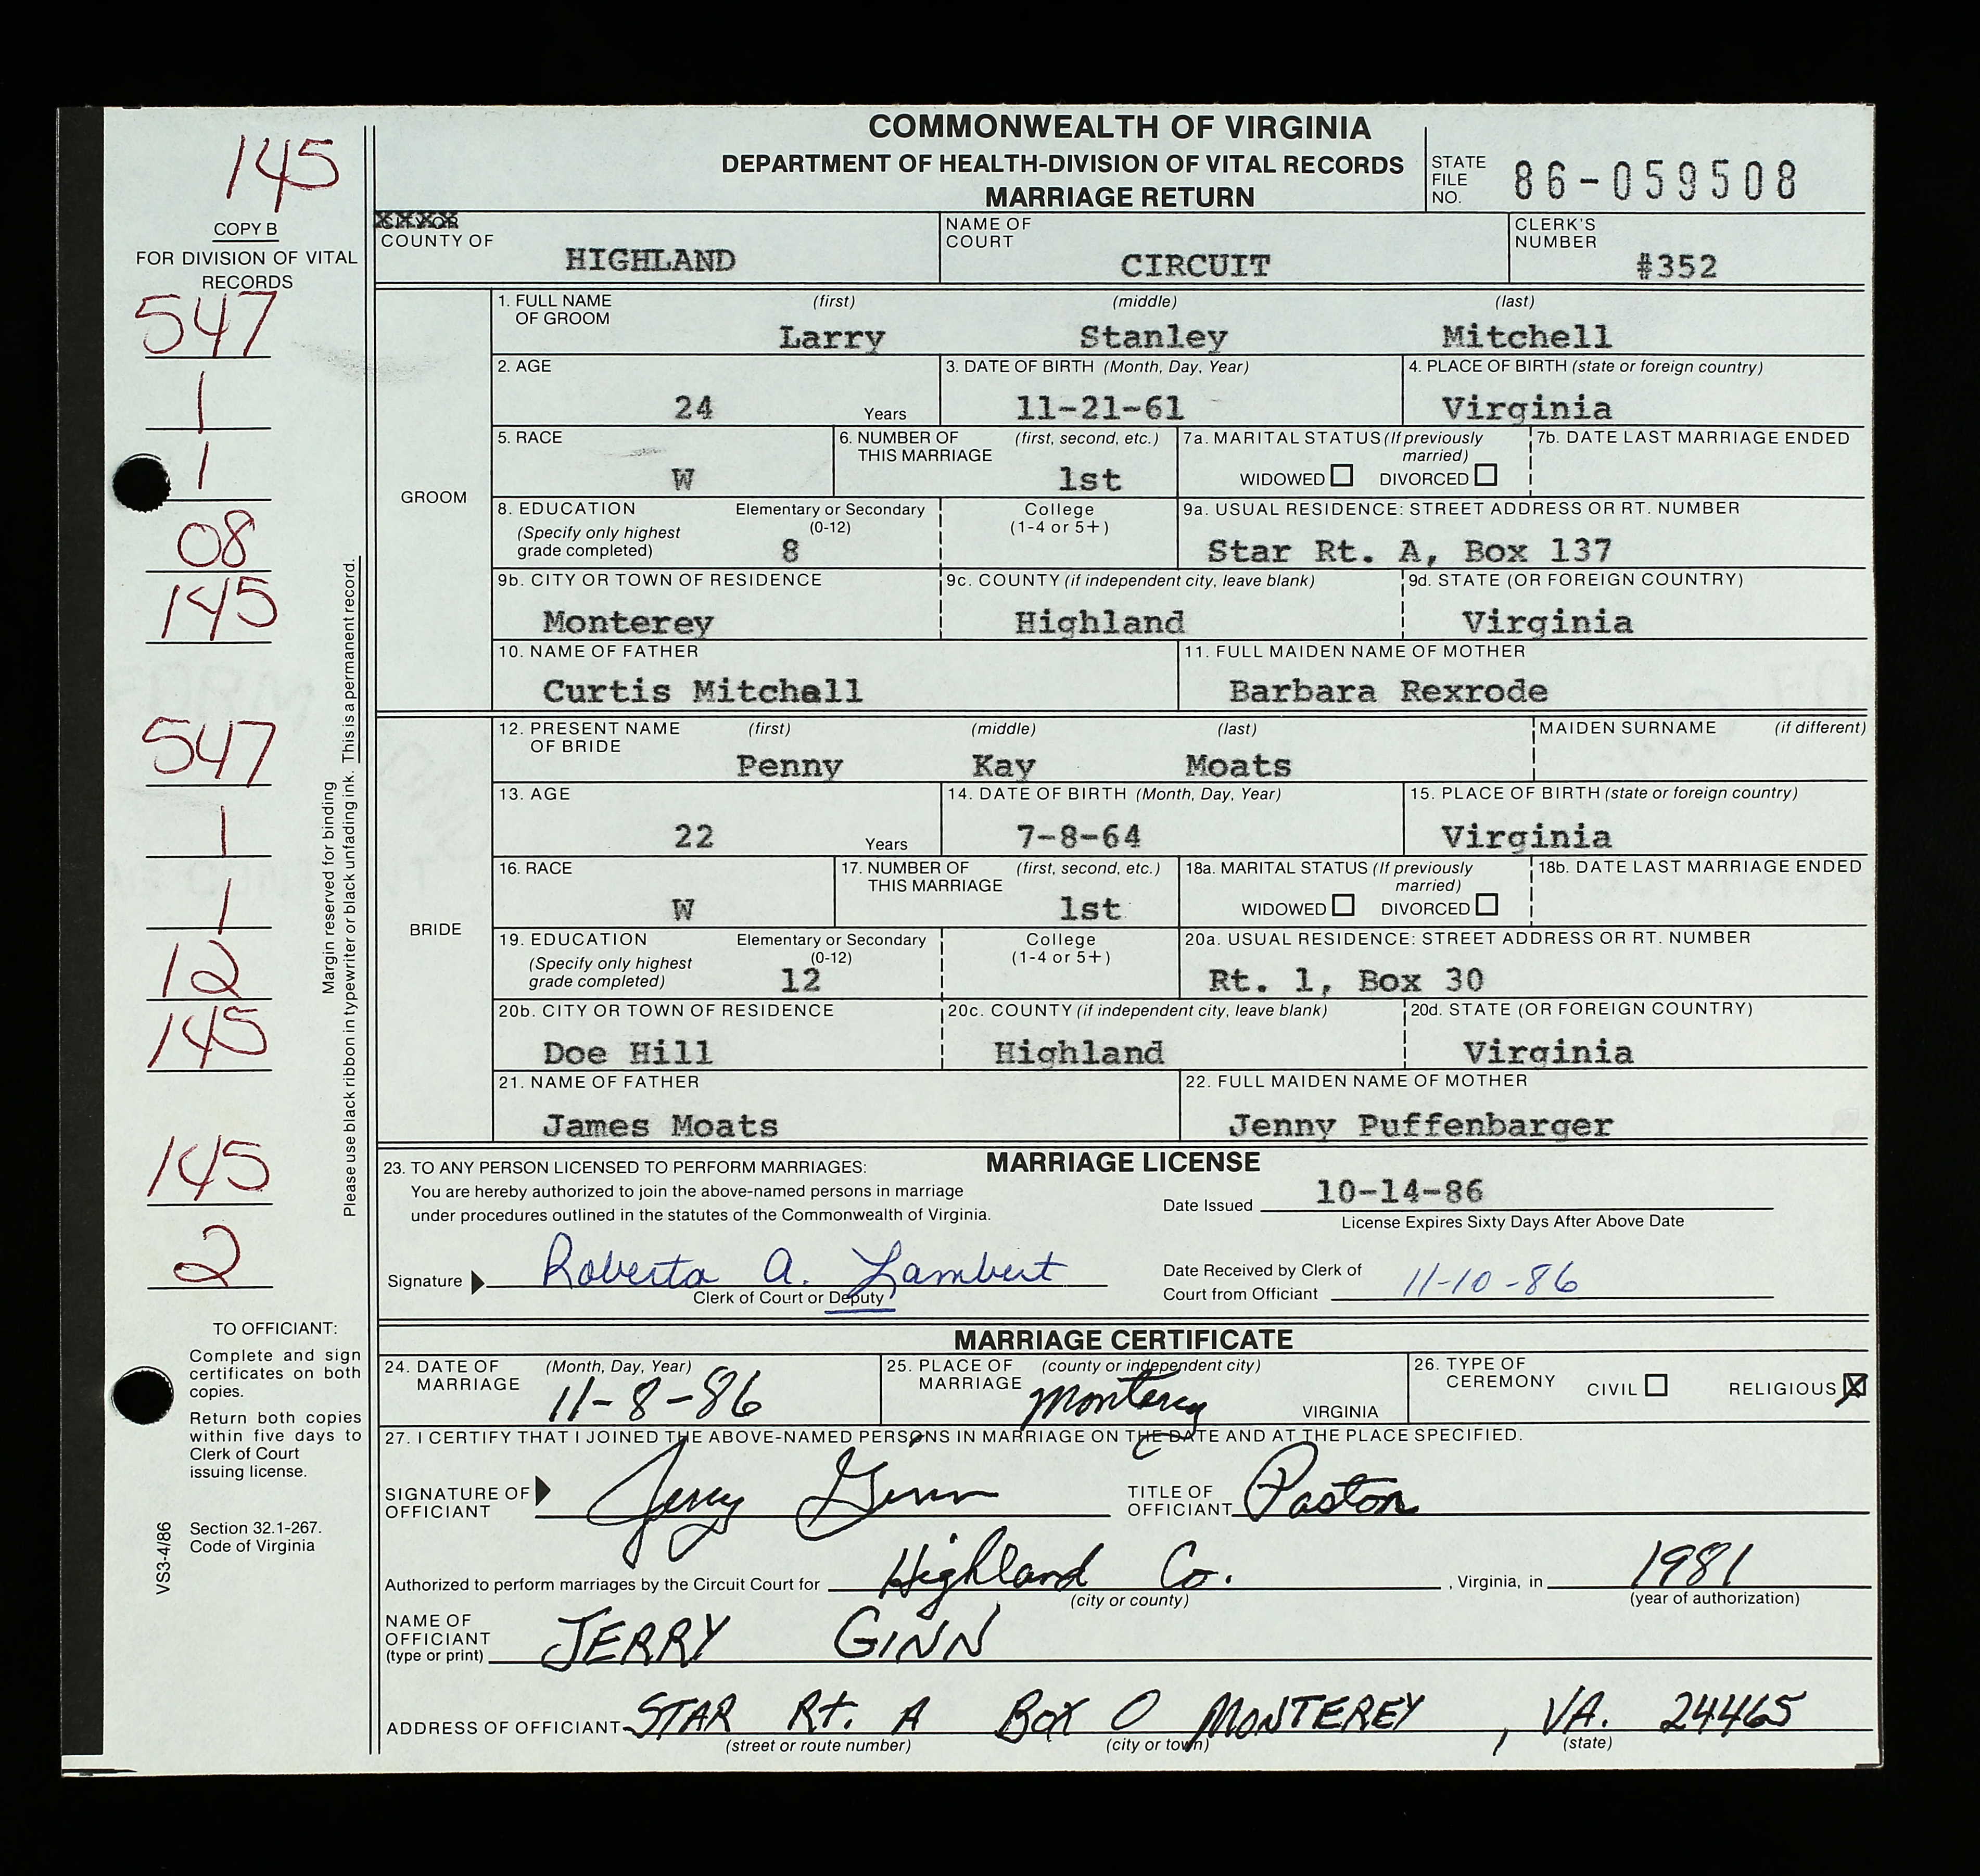 145
COPY B
FOR DIVISION OF VITAL
RECORDS
547
1
1
08
145
547
1
1
12
145
145
2
Margin reserved for binding
Please use black ribbon in typewriter or black unfading ink. This is a permanent record.
TO OFFICIANT:
Complete and sign
certificates on both
copies.
Return both copies
within five days to
Clerk of Court
issuing license.
Section 32.1-267.
Code of Virginia
VS3-4/86
COMMONWEALTH OF VIRGINIA
DEPARTMENT OF HEALTH-DIVISION OF VITAL RECORDS
MARRIAGE RETURN
STATE FILE NO. 86-059508
CITY OR
COUNTY OF HIGHLAND
NAME OF COURT CIRCUIT
CLERK'S NUMBER #352
GROOM
1. FULL NAME OF GROOM (first) (middle) (last)
Larry Stanley Mitchell
2. AGE 24 Years
3. DATE OF BIRTH (Month, Day, Year) 11-21-61
4. PLACE OF BIRTH (state or foreign country) Virginia
5. RACE W
6. NUMBER OF THIS MARRIAGE (first, second, etc.) 1st
7a. MARITAL STATUS (If previously married) WIDOWED DIVORCED
7b. DATE LAST MARRIAGE ENDED
8. EDUCATION (Specify only highest grade completed) Elementary or Secondary (0-12) 8 College (1-4 or 5+)
9a. USUAL RESIDENCE: STREET ADDRESS OR RT. NUMBER Star Rt. A, Box 137
9b. CITY OR TOWN OF RESIDENCE Monterey
9c. COUNTY (if independent city, leave blank) Highland
9d. STATE (OR FOREIGN COUNTRY) Virginia
10. NAME OF FATHER Curtis Mitchell
11. FULL MAIDEN NAME OF MOTHER Barbara Rexrode
BRIDE
12. PRESENT NAME OF BRIDE (first) (middle) (last) MAIDEN SURNAME (if different)
Penny Kay Moats
13. AGE 22 Years
14. DATE OF BIRTH (Month, Day, Year) 7-8-64
15. PLACE OF BIRTH (state or foreign country) Virginia
16. RACE W
17. NUMBER OF THIS MARRIAGE (first, second, etc.) 1st
18a. MARITAL STATUS (If previously married) WIDOWED DIVORCED
18b. DATE LAST MARRIAGE ENDED
19. EDUCATION (Specify only highest grade completed) Elementary or Secondary (0-12) 12 College (1-4 or 5+)
20a. USUAL RESIDENCE: STREET ADDRESS OR RT. NUMBER Rt. 1, Box 30
20b. CITY OR TOWN OF RESIDENCE Doe Hill
20c. COUNTY (if independent city, leave blank) Highland
20d. STATE (OR FOREIGN COUNTRY) Virginia
21. NAME OF FATHER James Moats
22. FULL MAIDEN NAME OF MOTHER Jenny Puffenbarger
MARRIAGE LICENSE
23. TO ANY PERSON LICENSED TO PERFORM MARRIAGES:
You are hereby authorized to join the above-named persons in marriage
under procedures outlined in the statutes of the Commonwealth of Virginia.
Date Issued 10-14-86
License Expires Sixty Days After Above Date
Signature Roberta A. Lambert
Clerk of Court or Deputy
Date Received by Clerk of
Court from Officiant 11-10-86
MARRIAGE CERTIFICATE
24. DATE OF MARRIAGE (Month, Day, Year) 11-8-86
25. PLACE OF MARRIAGE (county or independent city) Monterey VIRGINIA
26. TYPE OF CEREMONY CIVIL RELIGIOUS X
27. I CERTIFY THAT I JOINED THE ABOVE-NAMED PERSONS IN MARRIAGE ON THE DATE AND AT THE PLACE SPECIFIED.
SIGNATURE OF OFFICIANT Jerry Ginn
TITLE OF OFFICIANT Pastor
Authorized to perform marriages by the Circuit Court for Highland Co. , Virginia, in 1981
(city or county) (year of authorization)
NAME OF OFFICIANT (type or print) JERRY GINN
ADDRESS OF OFFICIANT STAR Rt. A Box O MONTEREY , VA. 24465
(street or route number) (city or town) (state)